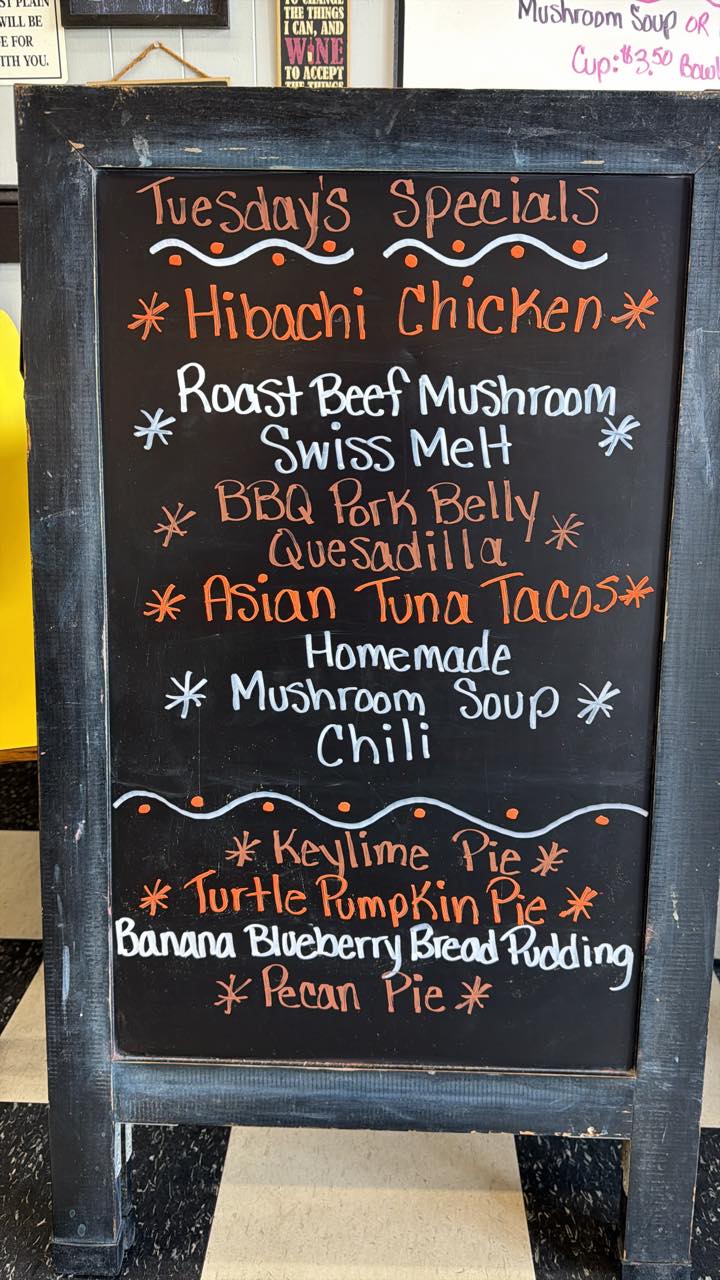 WILL BE
E FOR
WITH YOU.
THE THINGS
I CAN, AND
WINE
TO ACCEPT
THE THINGS
Mushroom Soup OR
Cup: $3.50 Bowl
Tuesday's Specials
* Hibachi Chicken *
Roast Beef Mushroom
* Swiss Melt *
* BBQ Pork Belly *
Quesadilla
* Asian Tuna Tacos *
Homemade
* Mushroom Soup *
Chili
* Keylime Pie *
* Turtle Pumpkin Pie *
Banana Blueberry Bread Pudding
* Pecan Pie *